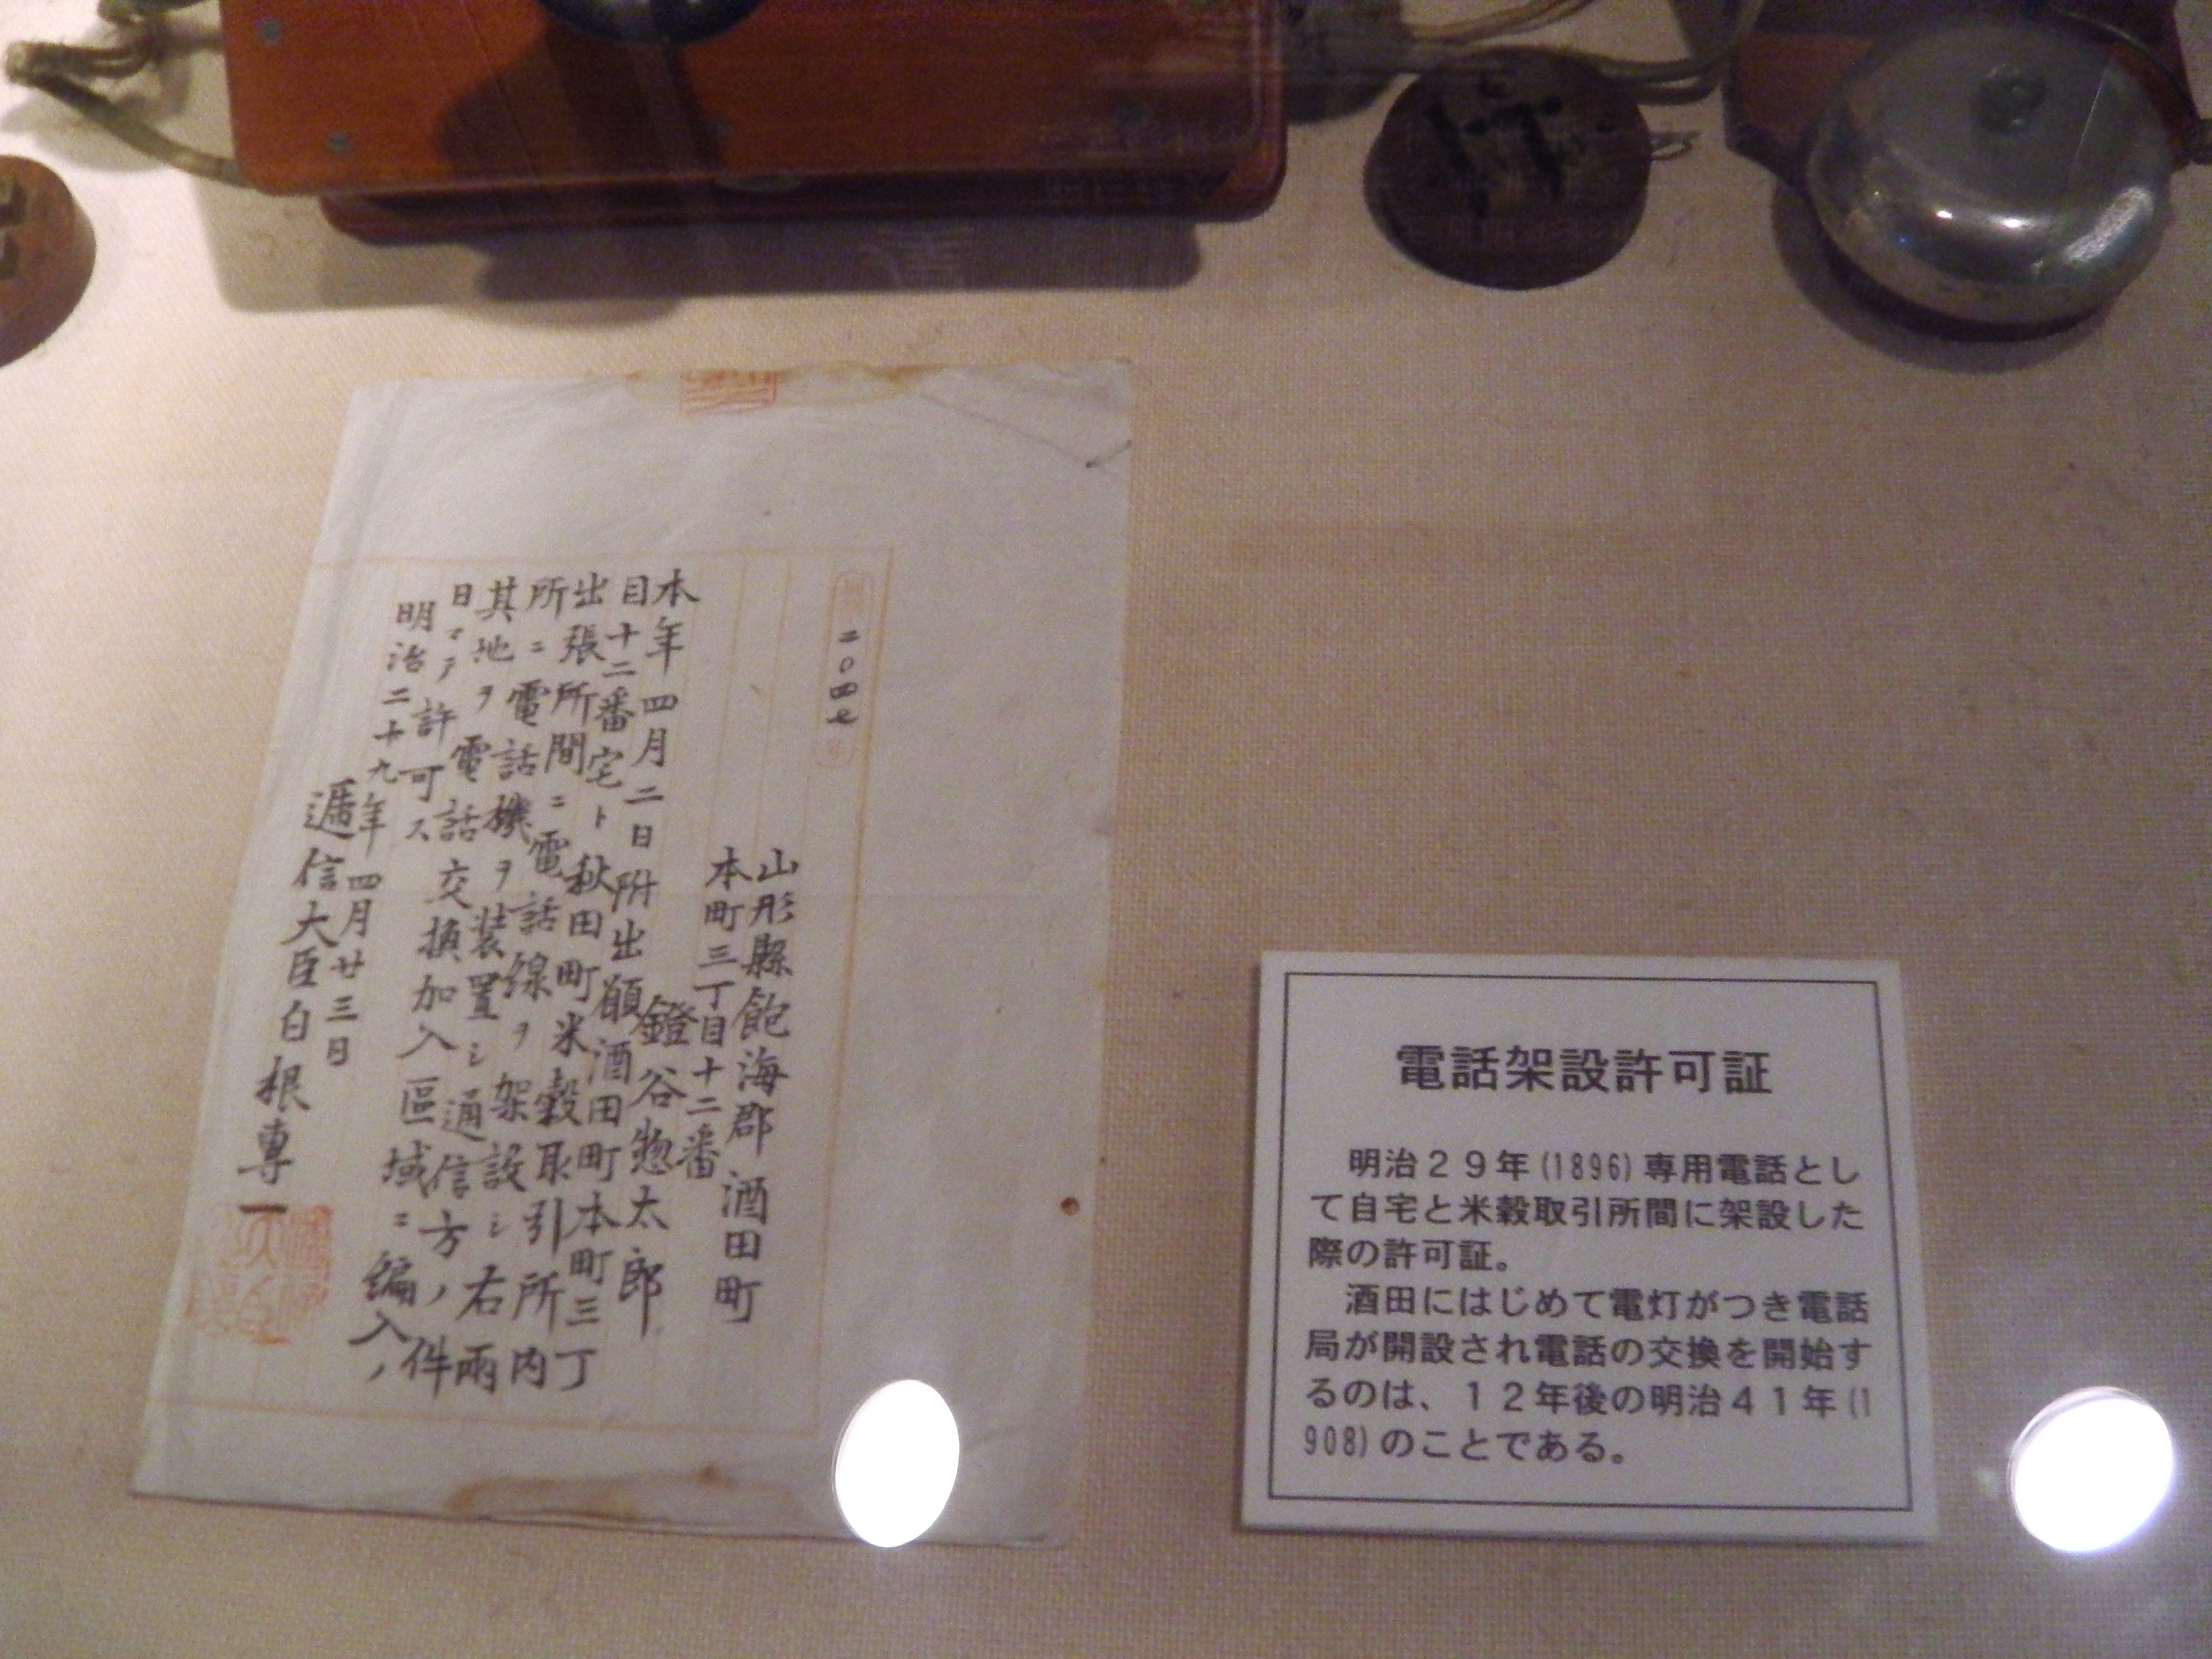 二〇四七
山形縣飽海郡酒田町
本町三丁目十二番
鐙谷惣太郎
本年四月二日附出願酒田町本町三丁
目十二番宅ト秋田町米穀取引所内
出張所間ニ電話線ヲ架設シ右兩
所ニ電話機ヲ装置シ通信方ノ件
其地ヲ電話交換加入區域ニ編入ノ
日マテ許可ス
明治二十九年四月廿三日
遞信大臣白根專一
電話架設許可証
明治29年(1896)専用電話とし
て自宅と米穀取引所間に架設した
際の許可証。
酒田にはじめて電灯がつき電話
局が開設され電話の交換を開始す
るのは、12年後の明治41年(1
908)のことである。